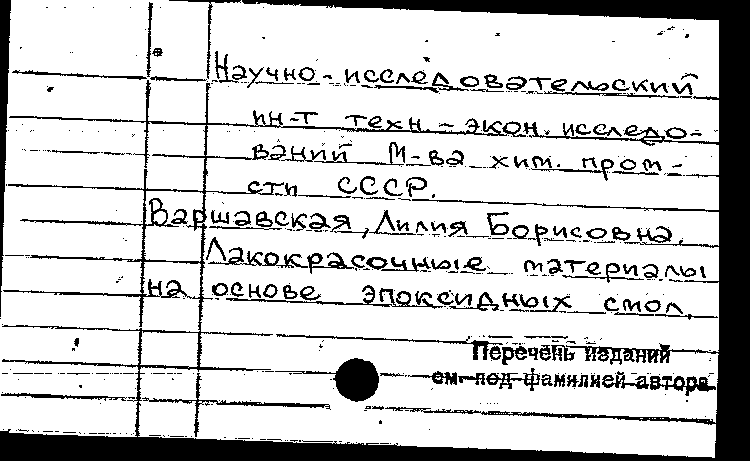 Научно-исследовательский
ин-т техн.-экон. исследо-
ваний М-ва хим. пром-
сти СССР.
Варшавская, Лилия Борисовна.
Лакокрасочные материалы
на основе эпоксидных смол.
Перечень изданий
см. под фамилией автора